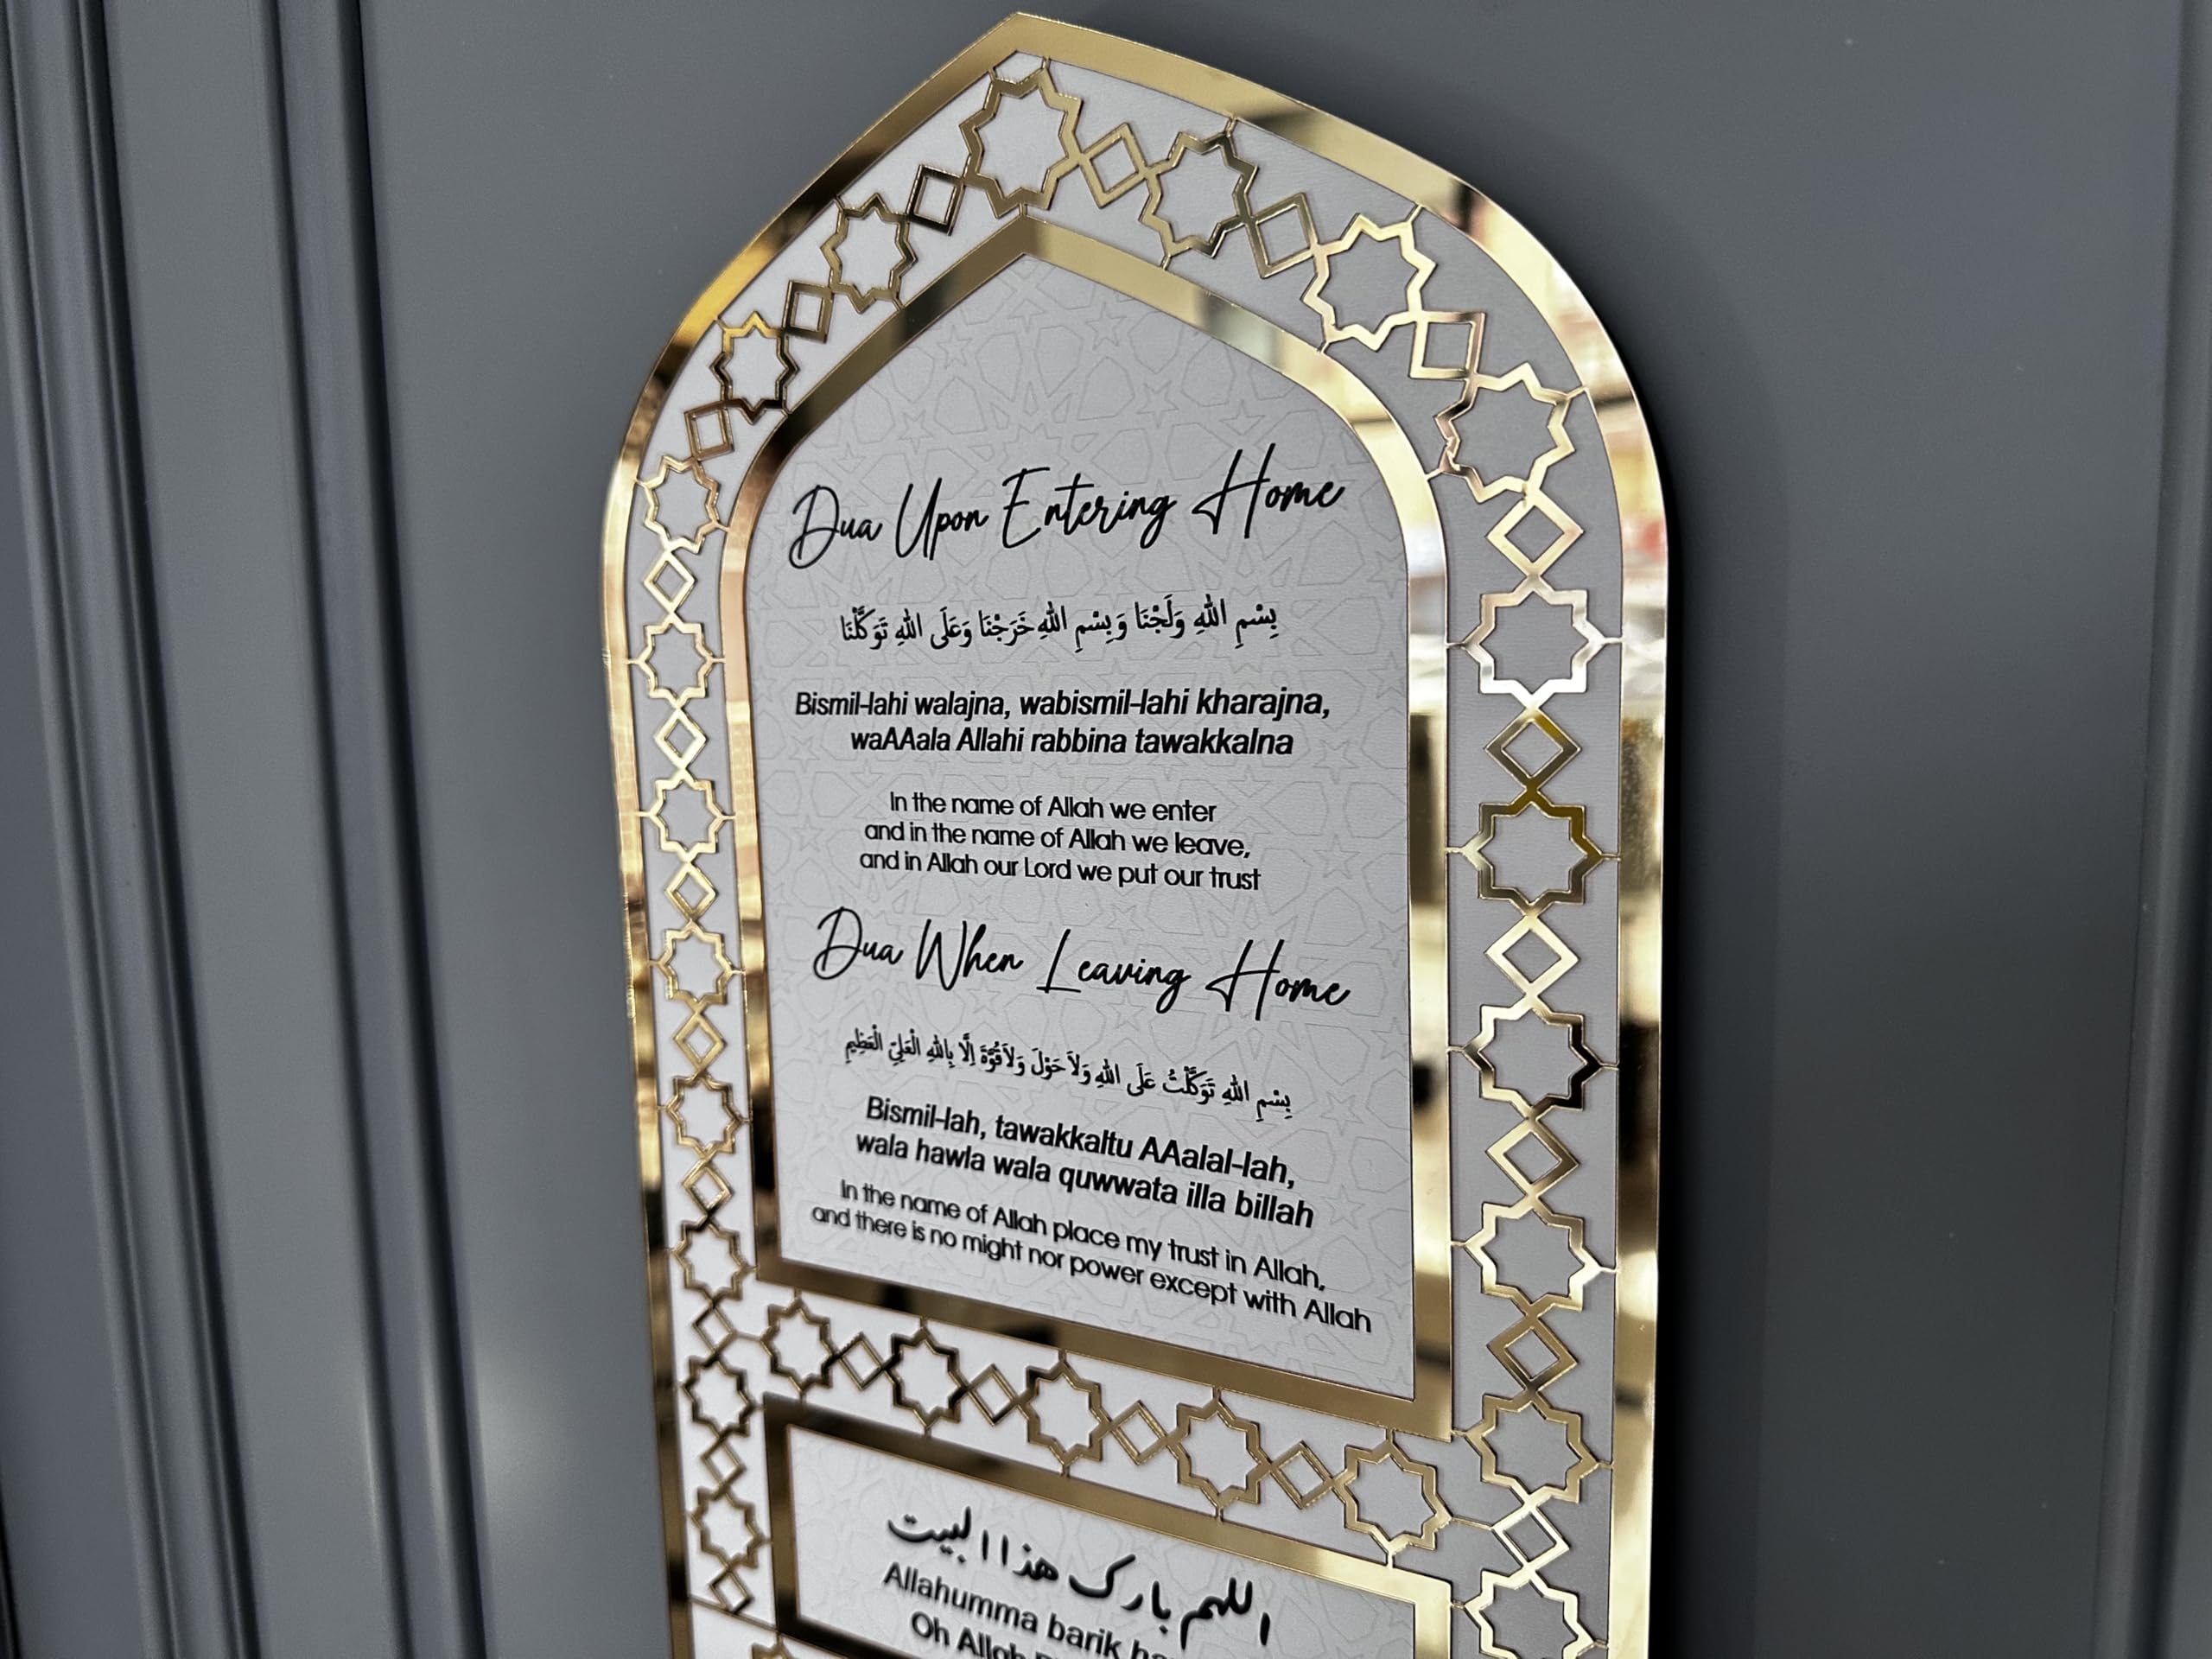 Dua Upon Entering Home
بِسْمِ اللهِ وَلَجْنَا وَبِسْمِ اللهِ خَرَجْنَا وَعَلَى اللهِ تَوَكَّلْنَا
Bismil-lahi walajna, wabismil-lahi kharajna,
waAAala Allahi rabbina tawakkalna
In the name of Allah we enter
and in the name of Allah we leave,
and in Allah our Lord we put our trust
Dua When Leaving Home
بِسْمِ اللهِ تَوَكَّلْتُ عَلَى اللهِ وَلاَ حَوْلَ وَلاَ قُوَّةَ اِلَّا بِاللهِ الْعَلِيِّ الْعَظِيمِ
Bismil-lah, tawakkaltu AAalal-lah,
wala hawla wala quwwata illa billah
In the name of Allah place my trust in Allah,
and there is no might nor power except with Allah
اللهم بارك هذا البيت
Allahumma barik
Oh Allah